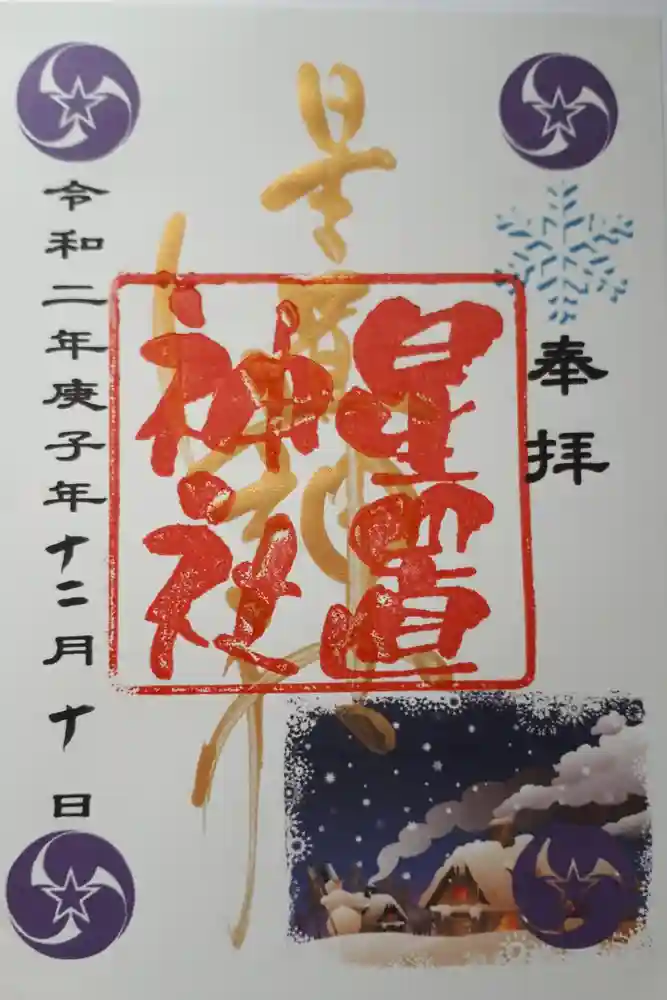 奉拝
星置神社
星置神社
令和二年庚子年十二月十日